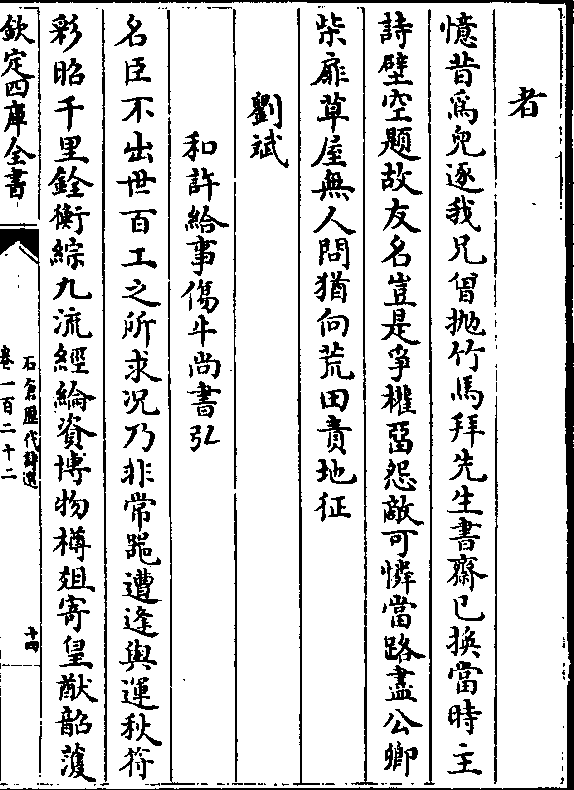 者
憶昔爲兒逐我兄曽抛竹馬拜先生書齋已換當時主
詩壁空題故友名豈是爭權留怨敵可憐當路盡公卿
柴扉草屋無人問猶向荒田責地征
劉斌
和許給事傷牛尚書弘
名臣不出世百工之所求况乃非常器遭逢與運秋符
彩昭千里銓衡綜九流經綸資博物樽俎寄皇猷韶濩
欽定四庫全書
石倉歷代詩選
卷一百二十二
十四